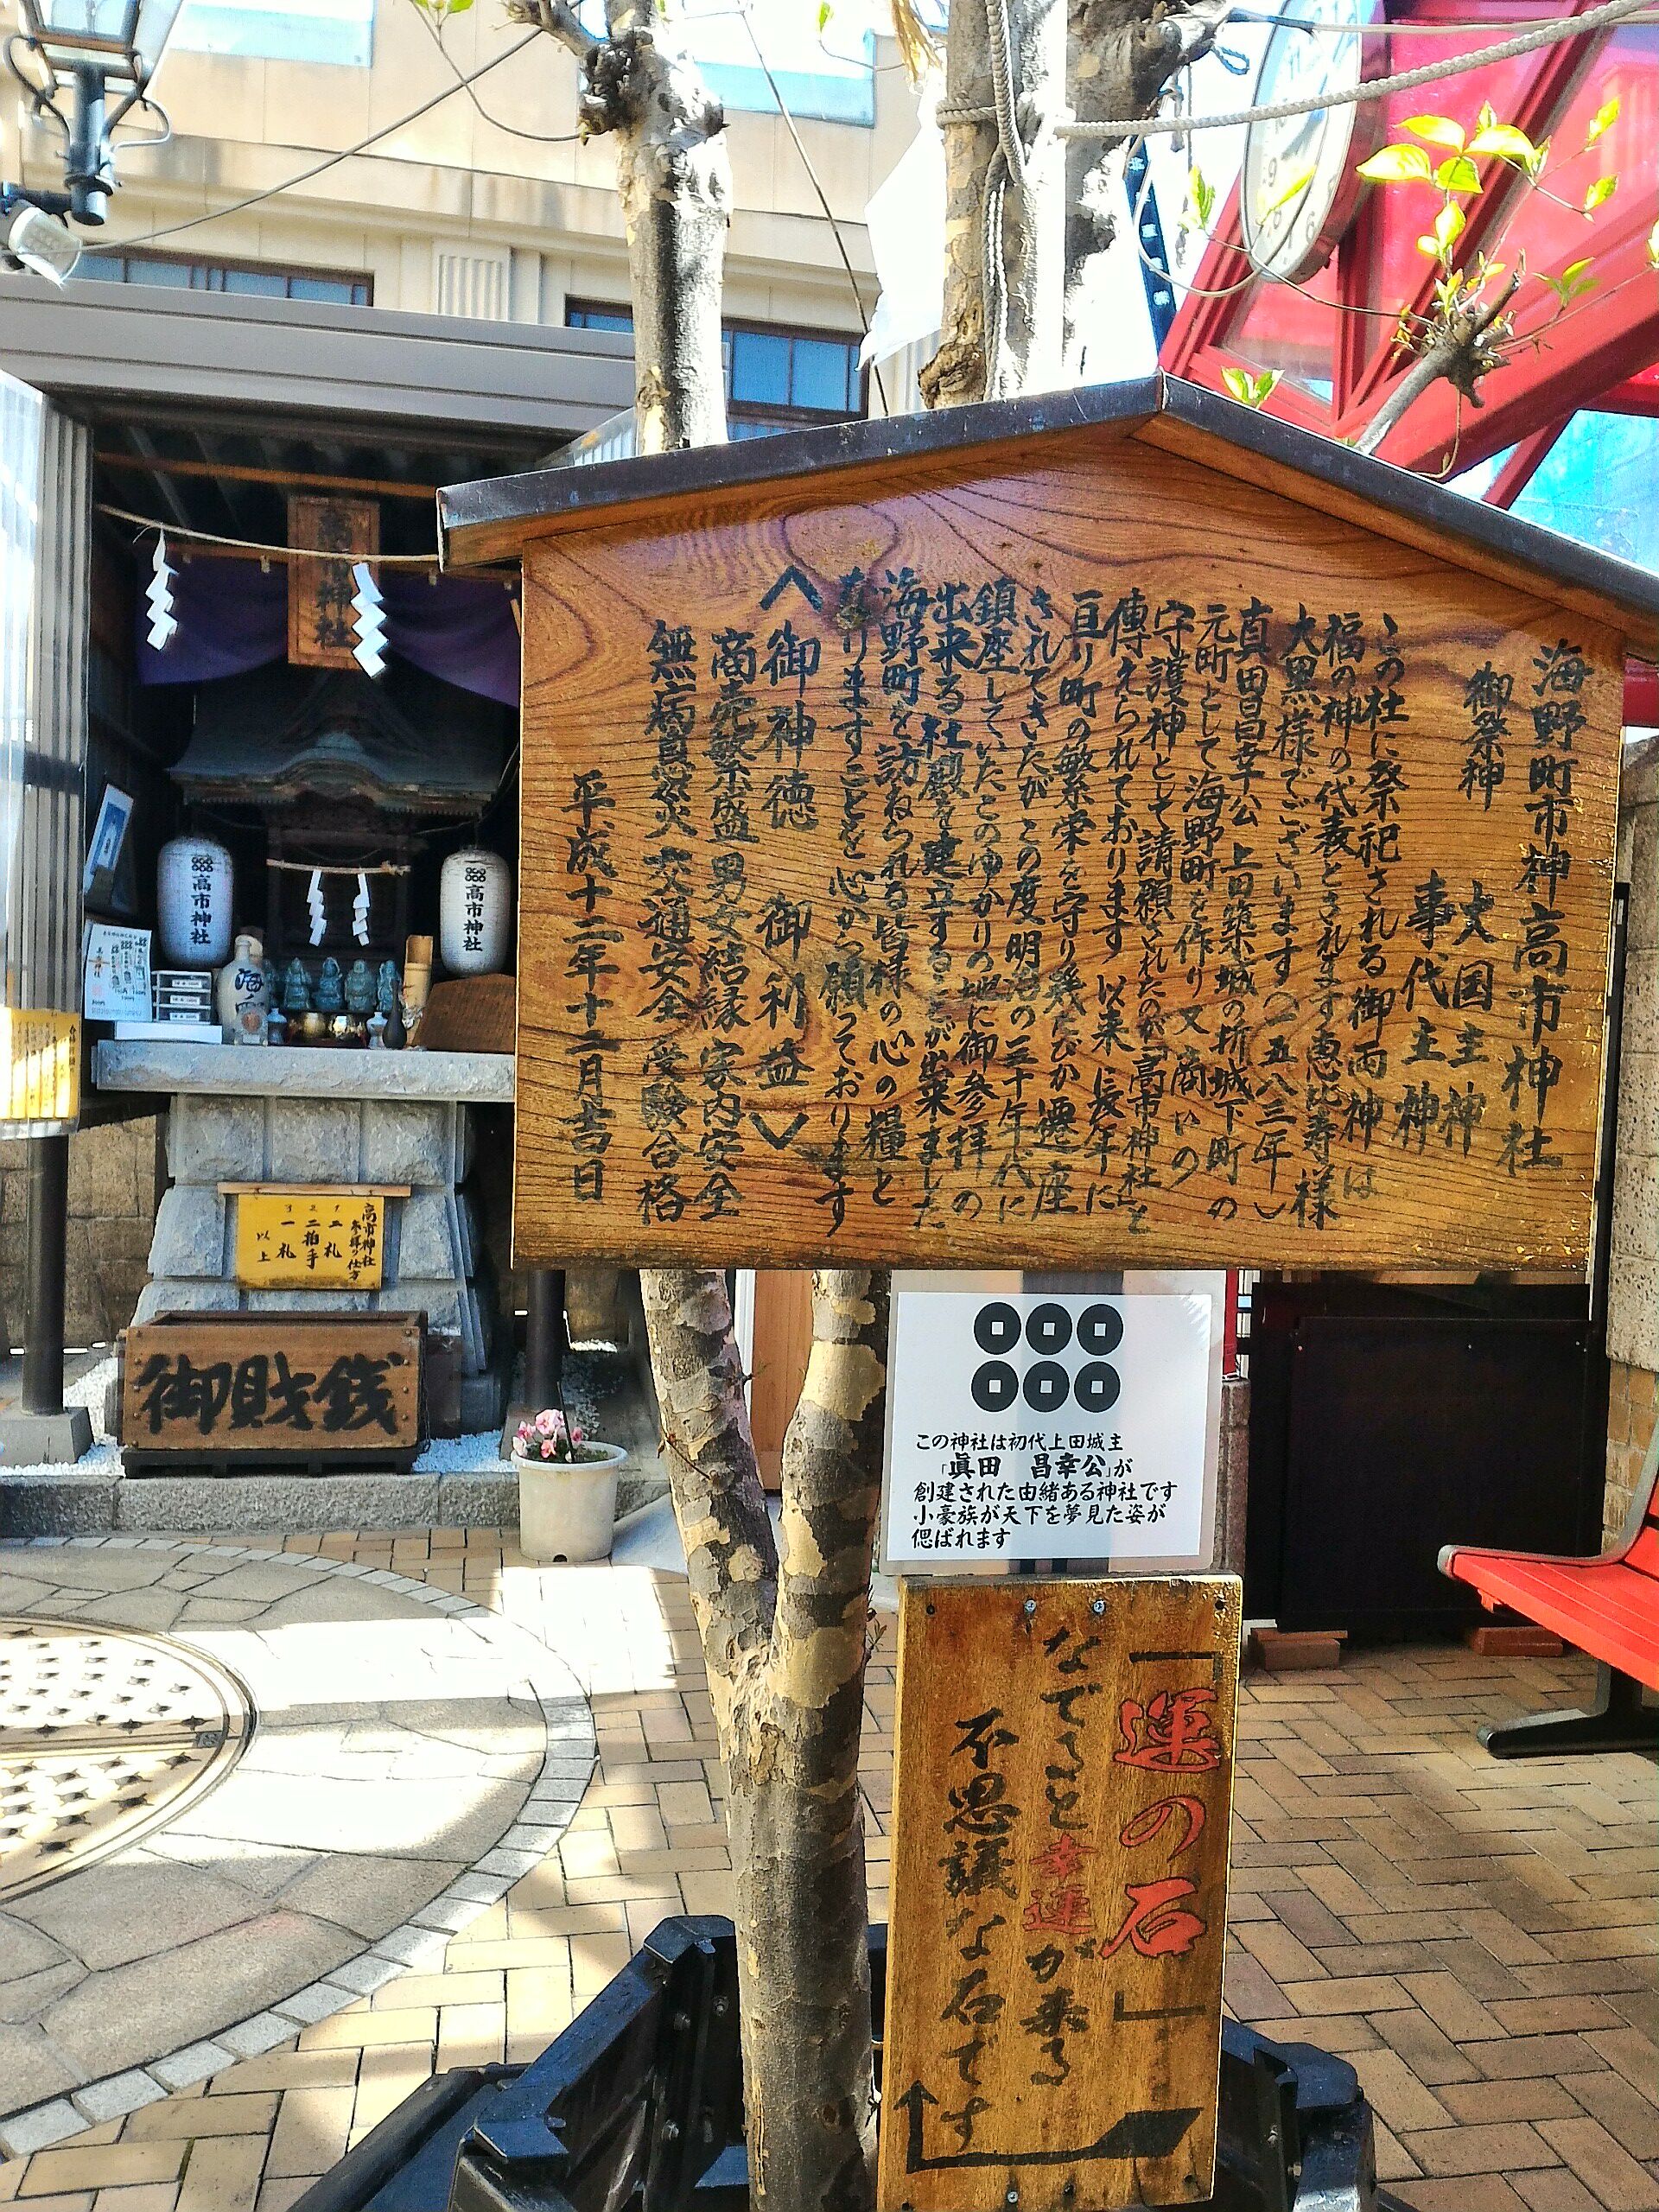 海野町市神高市神社
御祭神
大国主神
事代主神
この社に祭祀される御両神は
福の神の代表とされます恵比寿様
大黒様でございます(一五八三年)
真田昌幸公 上田築城の折城下町の
元町として海野町を作り又商いの
守護神として請願されたのが「高市神社」と
傳えられております 以来 長年に
亘り町の敏繁栄を守り幾たびか遷座
されてきたがこの度明治の三十年代に
鎮座していたこのゆかりの地に御参拝の
出来る社殿を建立することが出来ました
海野町を訪ねられる皆様の心の糧と
なりますことを心から願っております
〈御神徳 御利益〉
商売繁盛 男女結縁 家内安全
無病息災 交通安全 受験合格
平成十二年十二月吉日
この神社は初代上田城主
「眞田 昌幸公」が
創建された由緒ある神社です
小豪族が天下を夢見た姿が
偲ばれます
「運の石」
なでると幸運が来る
不思議な石です
高市神社
高市神社
高市神社
高市神社
参拝の仕方
二礼
二拍手
一礼
以上
御賽銭